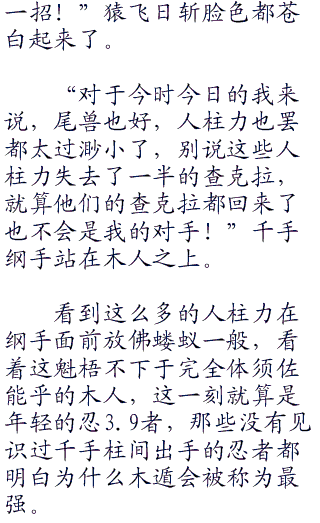 一招！”猿飞日斩脸色都苍
白起来了。
“对于今时今日的我来
说，尾兽也好，人柱力也罢
都太过渺小了，别说这些人
柱力失去了一半的查克拉，
就算他们的查克拉都回来了
也不会是我的对手！”千手
纲手站在木人之上。
看到这么多的人柱力在
纲手面前放佛蝼蚁一般，看
着这魁梧不下于完全体须佐
能乎的木人，这一刻就算是
年轻的忍3.9者，那些没有见
识过千手柱间出手的忍者都
明白为什么木遁会被称为最
强。